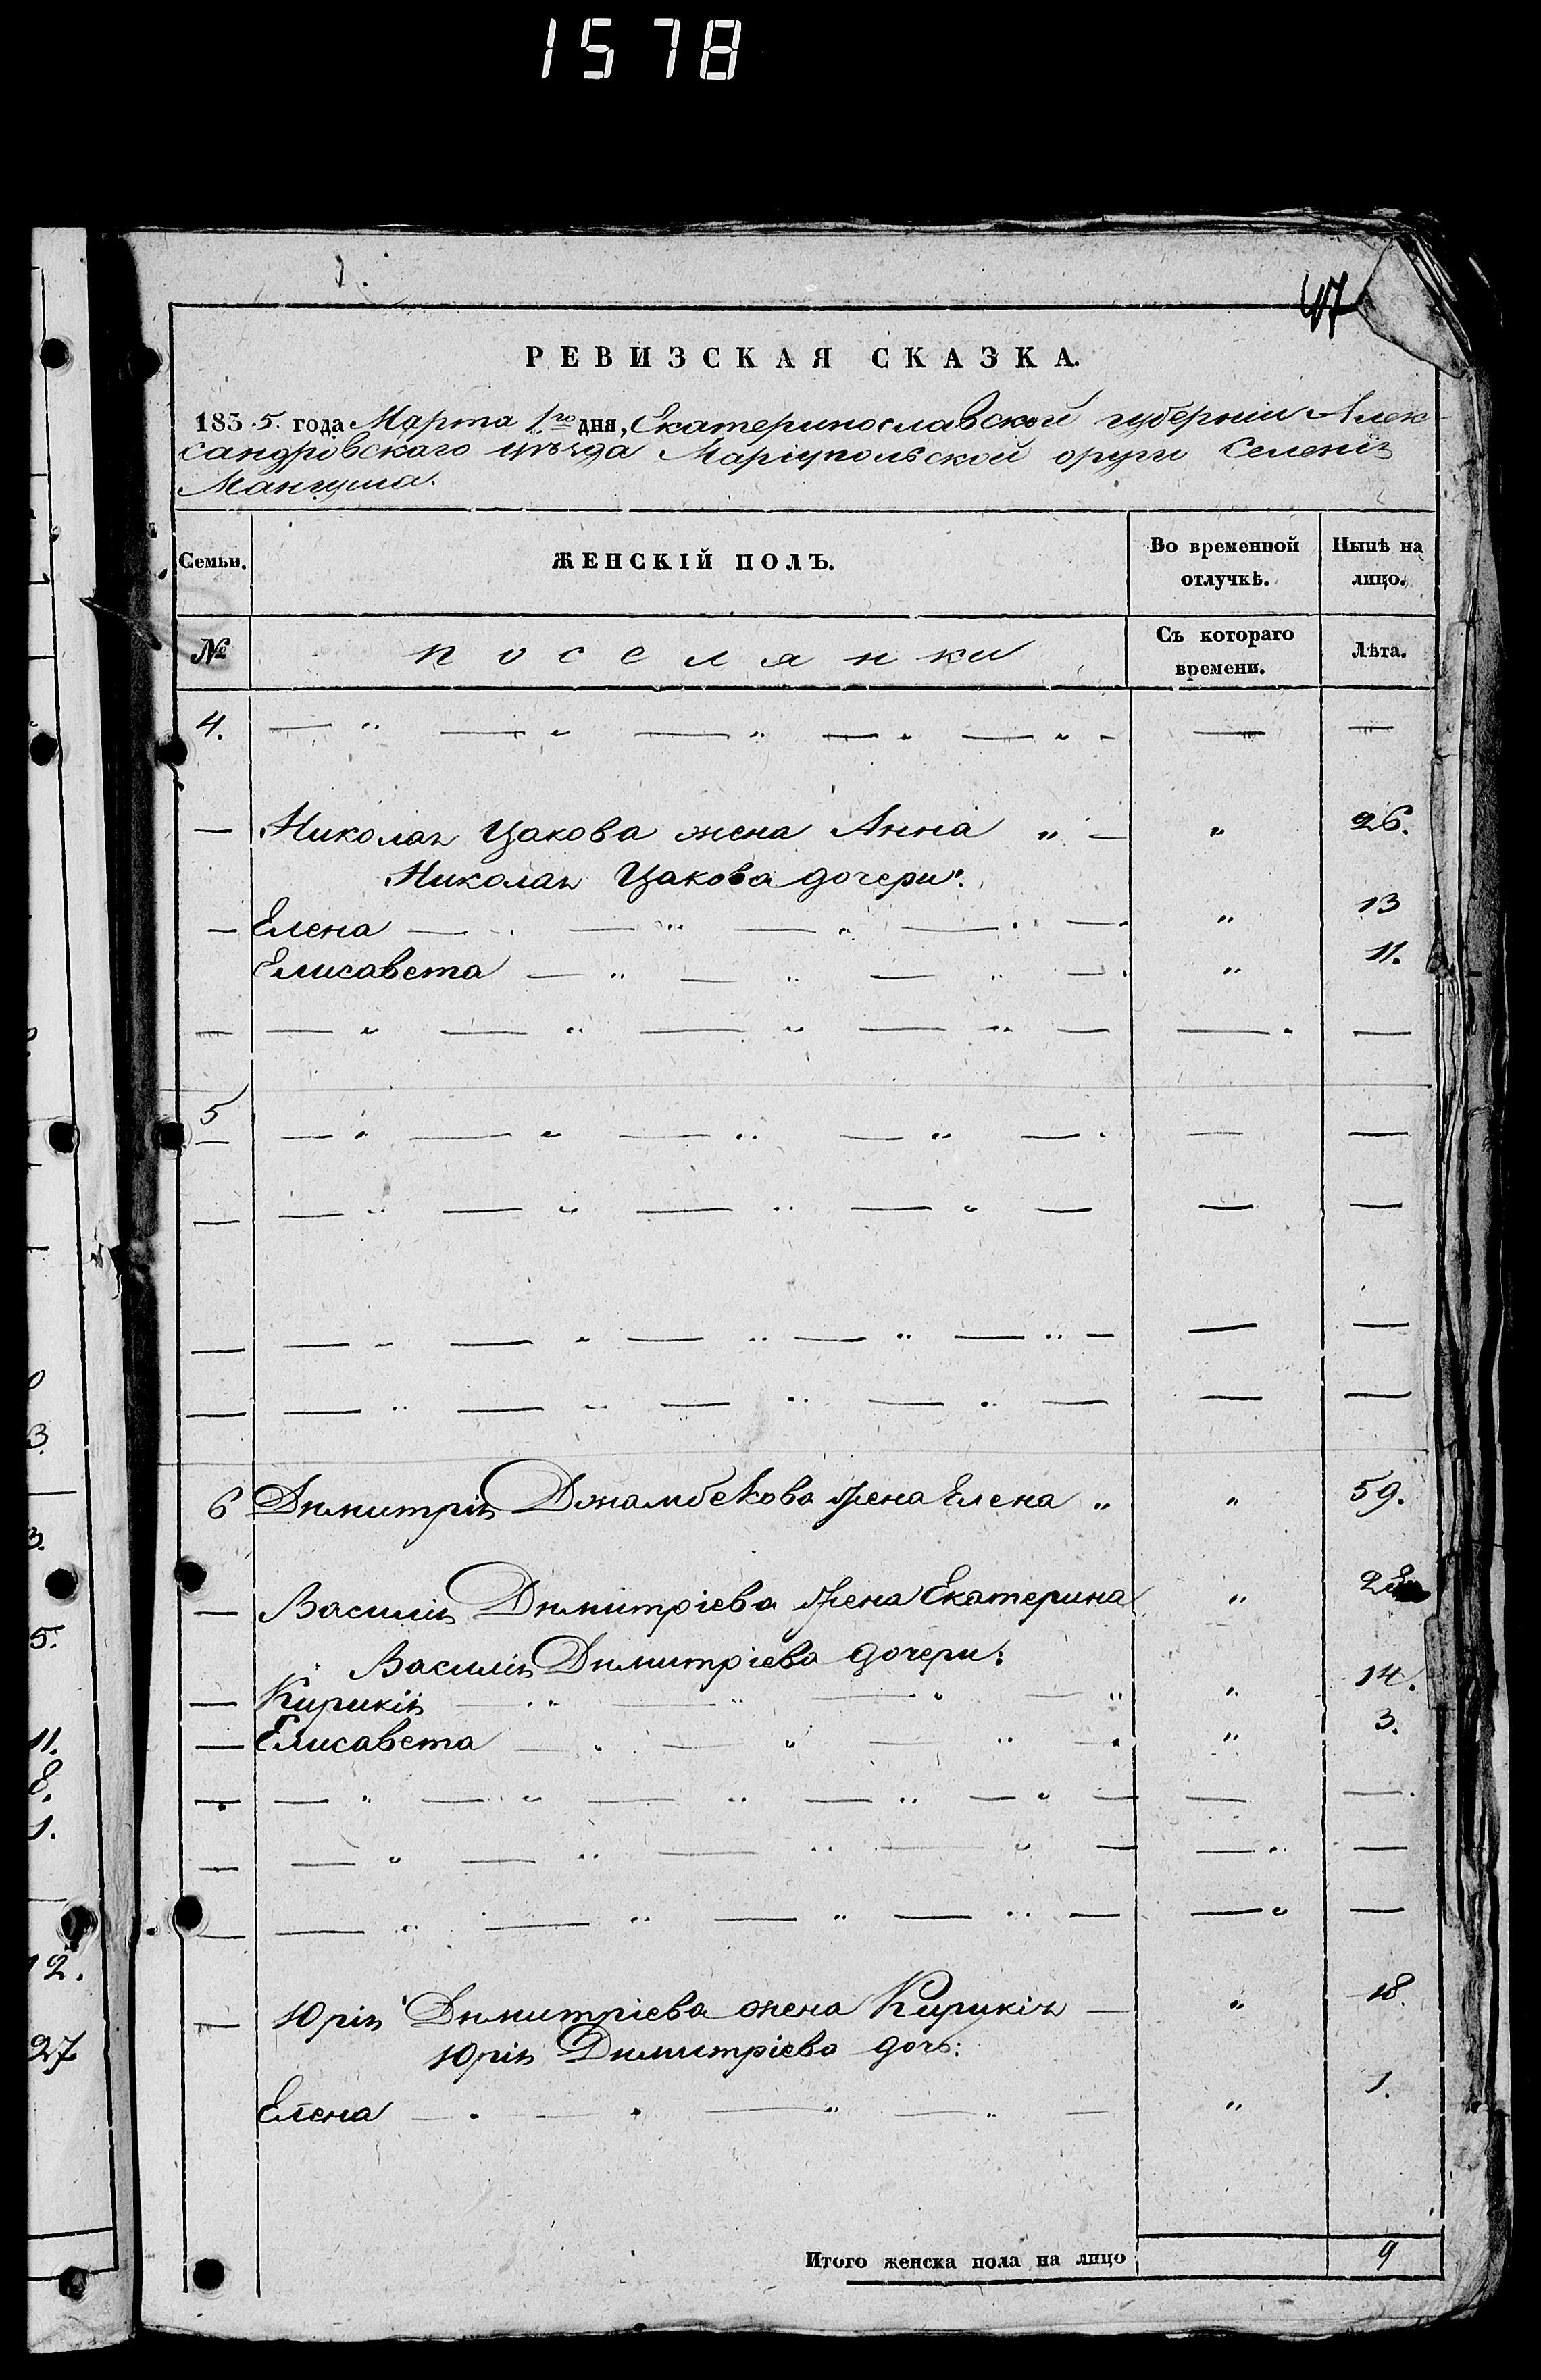 1578
47
РЕВИЗСКАЯ СКАЗКА.
1855. года Марта 1го дня, Екатеринославской губерніи Алек-
сандровскаго уѣзда Маріупольской округи Селенія
Мангуша.
Семьи. ЖЕНСКІЙ ПОЛЪ. Во временной отлучкѣ. Нынѣ на лицо.
№ поселянки Съ котораго времени. Лѣта.
4. — " — " — " — " — " — — —
— Николая Цакова жена Анна " — " 26.
Николая Цакова дочери:
— Елена — " — " — " — " — " 13
Елисавета — " — " — " — " 11.
— — " — " — " — " — — —
5
— — " — " — " — " — — —
— — " — " — " — " — — —
— — " — " — " — " — " — — —
— — " — " — " — " — — —
6 Димитрія Джамбекова жена Елена " " 59.
— Василія Димитріева жена Екатерина "
Василія Димитріева дочери:
— Кирикія — " — " — " — " " 14.
— Елисавета — " — " — " — " 3.
— — " — " — " — " — " — — —
— — " — " — " — " — — " —
— — " — " — " — " — — " —
— Юрія Димитріева жена Кирикія — " 18.
Юрія Димитріева дочь:
Елена — " — " — " — " — " 1.
Итого женска пола на лицо 9
3.
3.
5.
11.
8.
1.
12.
27